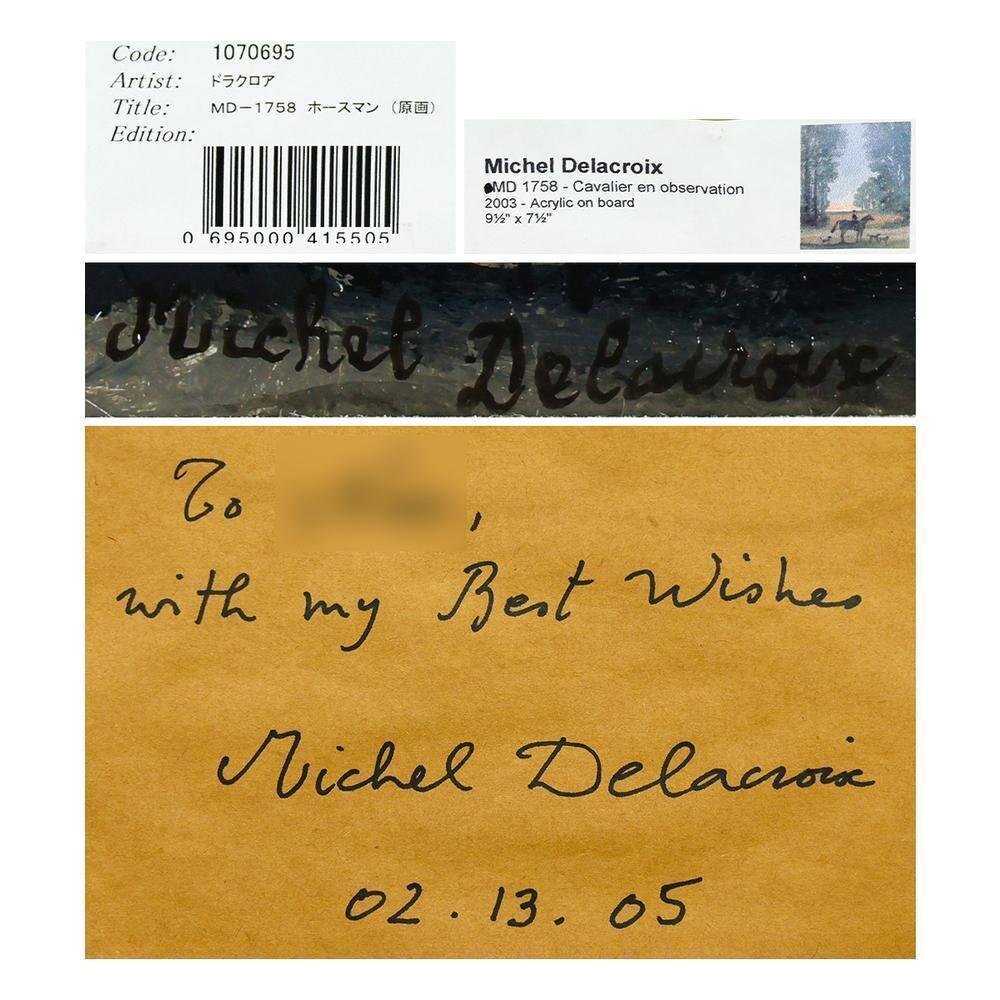 Code: 1070695
Artist: ドラクロア
Title: MD-1758 ホースマン (原画)
Edition:
0 695000 415505
Michel Delacroix
MD 1758 - Cavalier en observation
2003 - Acrylic on board
9½" x 7½"
Michel Delacroix
To ,
with my Best Wishes
Michel Delacroix
02.13.05